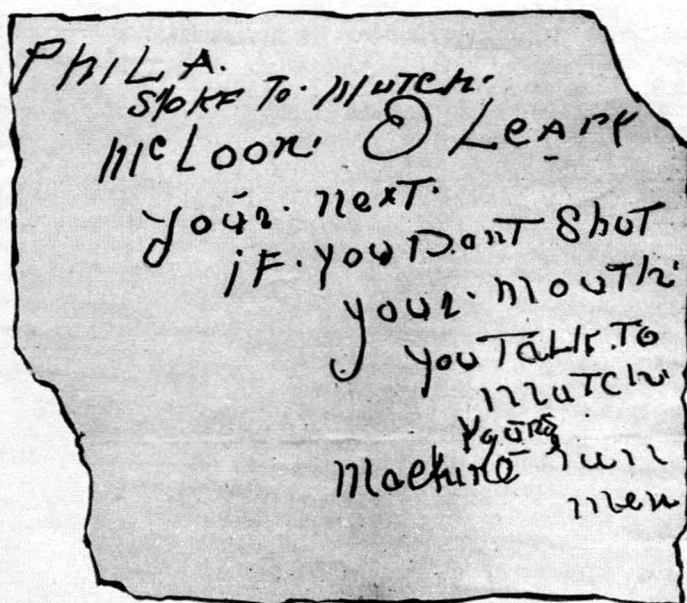 PHILA.
SPOKE To. MUTCH.
McLOON. O LeARY
your. next.
iF. you D.onT Shut
your. mouTh.
you TaLk.To
muTch.
yours
Machine Gun
men